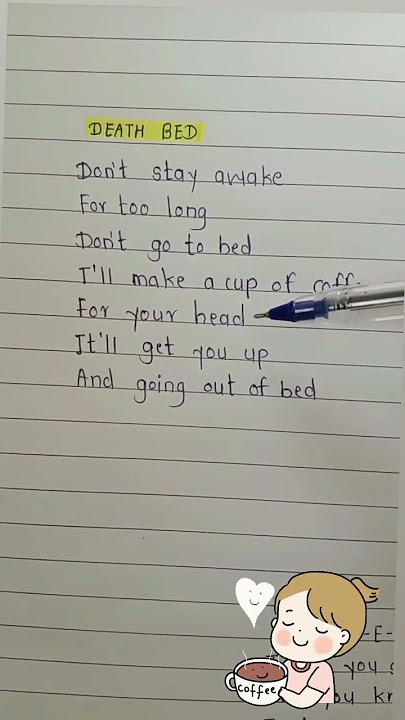 DEATH BED
Don't stay awake
For too long
Don't go to bed
I'll make a cup of coff
For your head
It'll get you up
And going out of bed
coffee
-E-
you
you kr